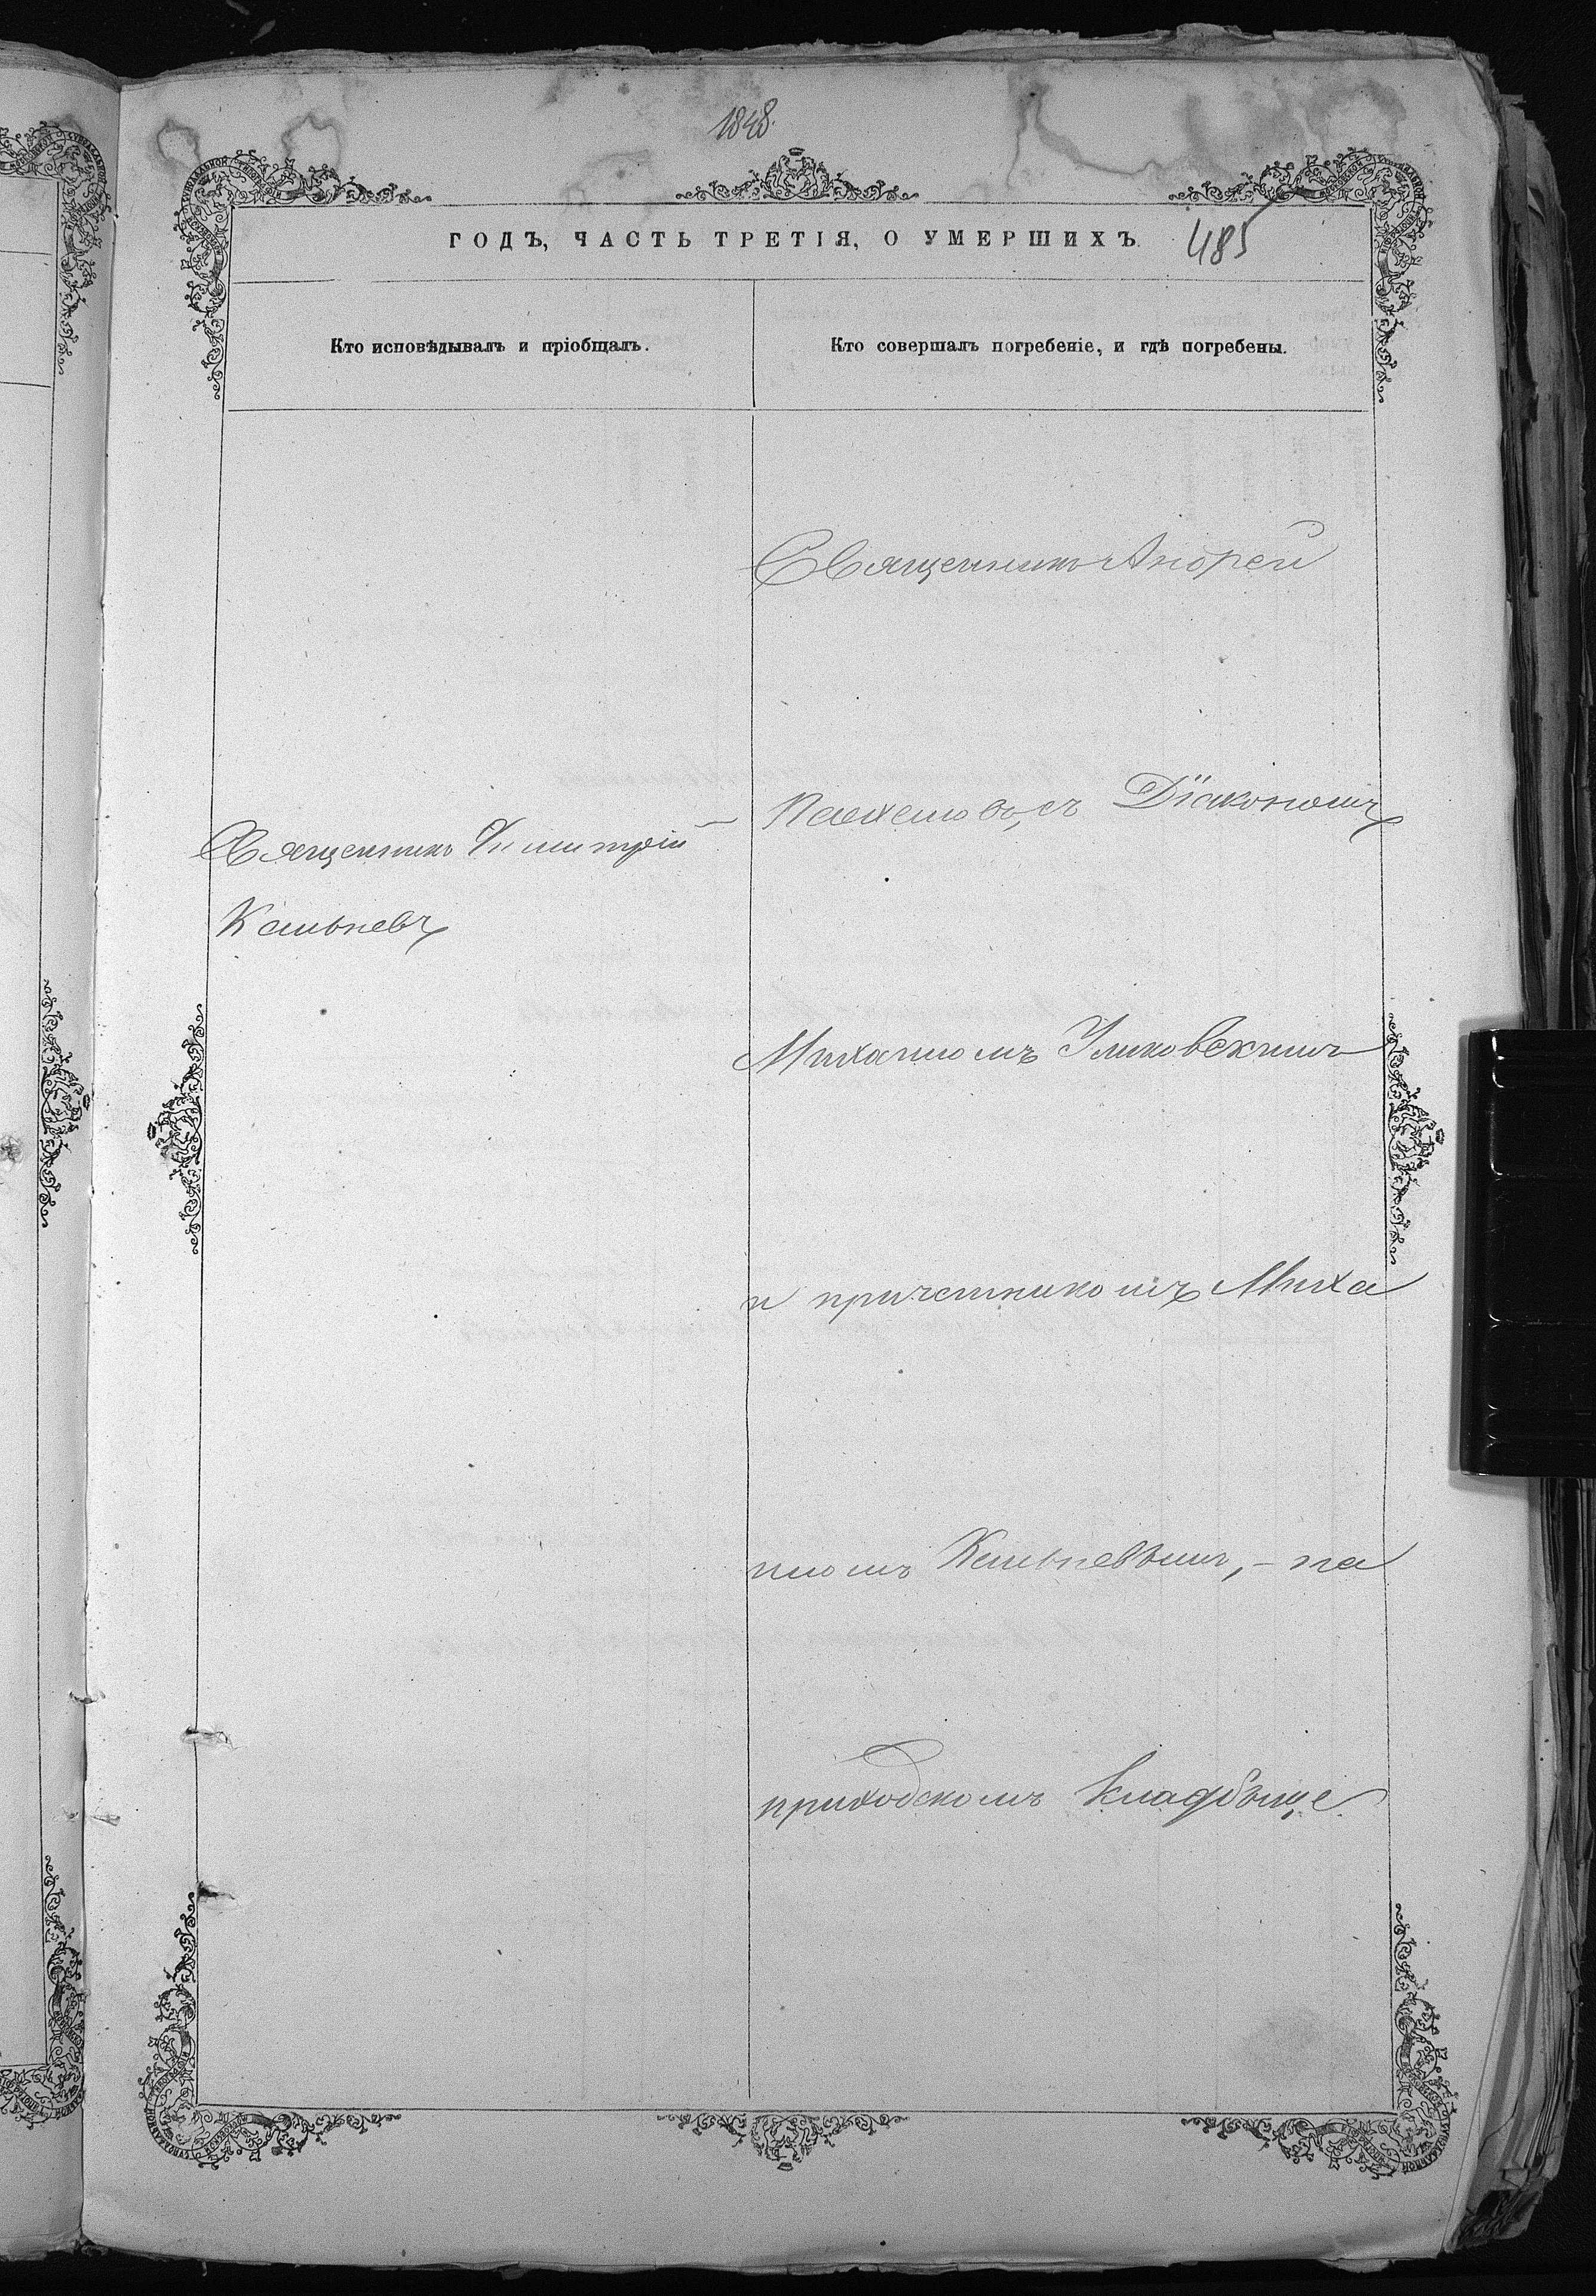 1848.
ГОДЪ, ЧАСТЬ ТРЕТІЯ, О УМЕРШИХЪ.
485
Кто исповѣдывалъ и пріобщалъ.
Кто совершалъ погребеніе, и гдѣ погребены.
Священникъ Димитрій
Кальневъ
Священникъ Андрей
съ Діакономъ
Михаиломъ
и причетникомъ Миха
иломъ Кальневымъ, – на
приходскомъ кладбыще.